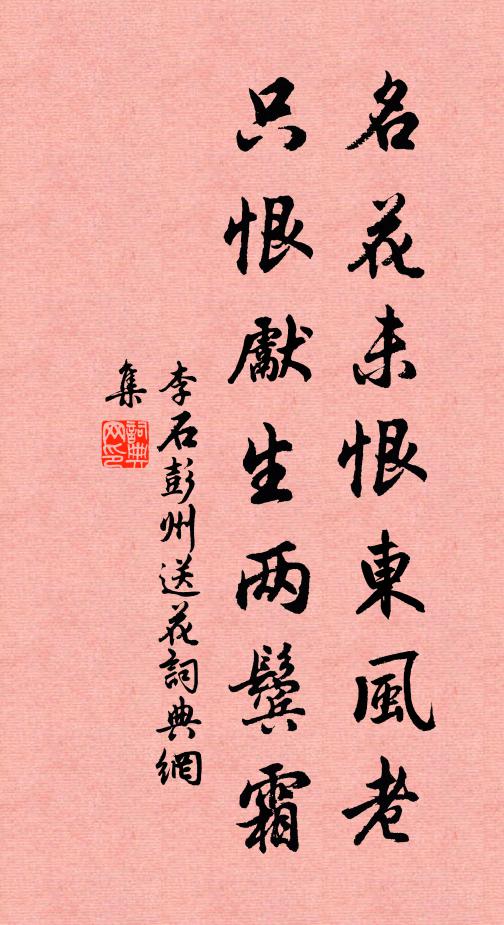 名花未恨東風老
只恨獻生两鬓霜
李石彭州送花詞典網
集
詞典
网印